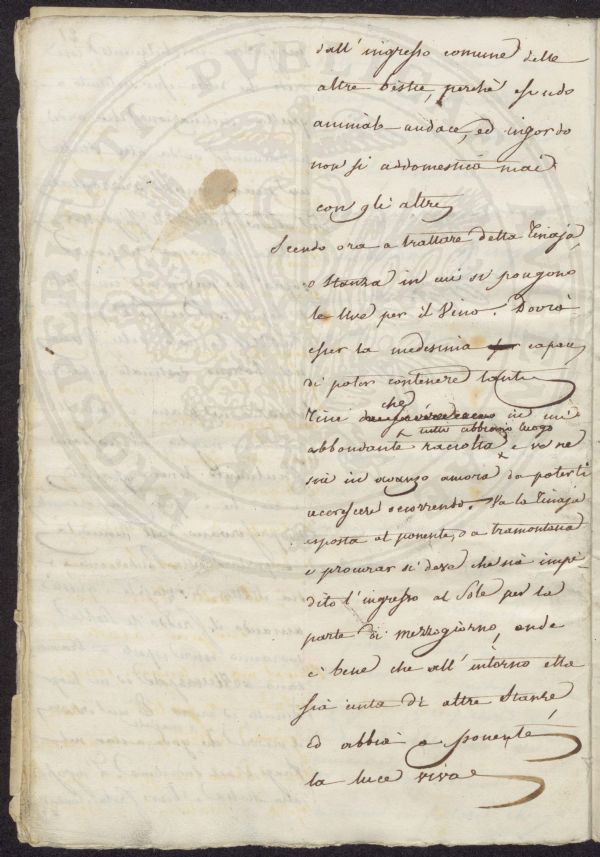 dall' ingresso comune delle
altre bestie, perchè essendo
animale audace, ed ingordo
non si addomestica mai
con gli altri
Scendo ora a trattare della Tinaja,
o Stanza in cui si pongono
le Uve per il Vino. Dovrà
esser la medesima capace
di poter contenere tanti
Tini che in un'
tutti abbiano luogo
abbondante raccolta e ve ne
sia in avanzo ancora da poterli
accrescere occorrendo. Va la Tinaja
esposta al ponente, o a tramontana
e procurar si deve che sia impe-
dito l'ingresso al Sole per la
parte di mezzogiorno, onde
è bene che all' intorno ella
sia cinta di altre Stanze,
ed abbia a ponente
la luce viva